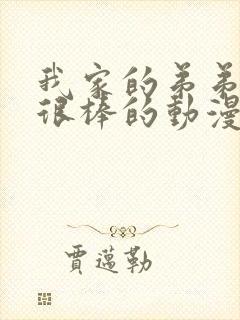 我家的弟弟
很棒的動漫
賈邁勒